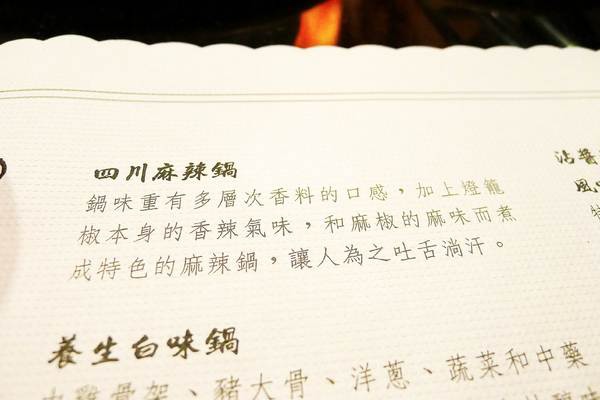 四川麻辣鍋
鍋味重有多層次香料的口感，加上燈籠
椒本身的香辣氣味，和麻椒的麻味而煮
成特色的麻辣鍋，讓人為之吐舌淌汗。
沾醬
風
養生白味鍋
雞骨架、豬大骨、洋蔥、蔬菜和中藥